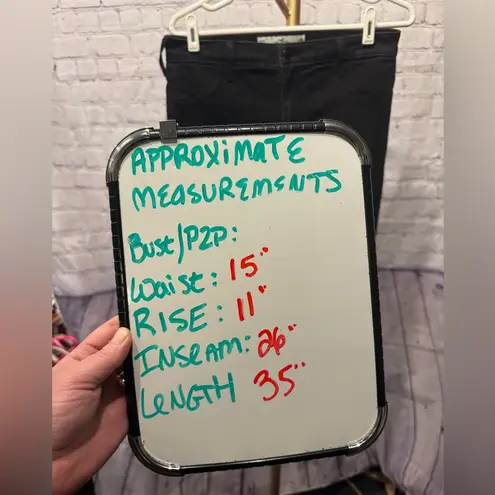 APPROXIMATE
MEASUREMENTS
Bust/P2P:
Waist: 15"
RISE: 11"
INSEAM: 26"
LENGTH 35"